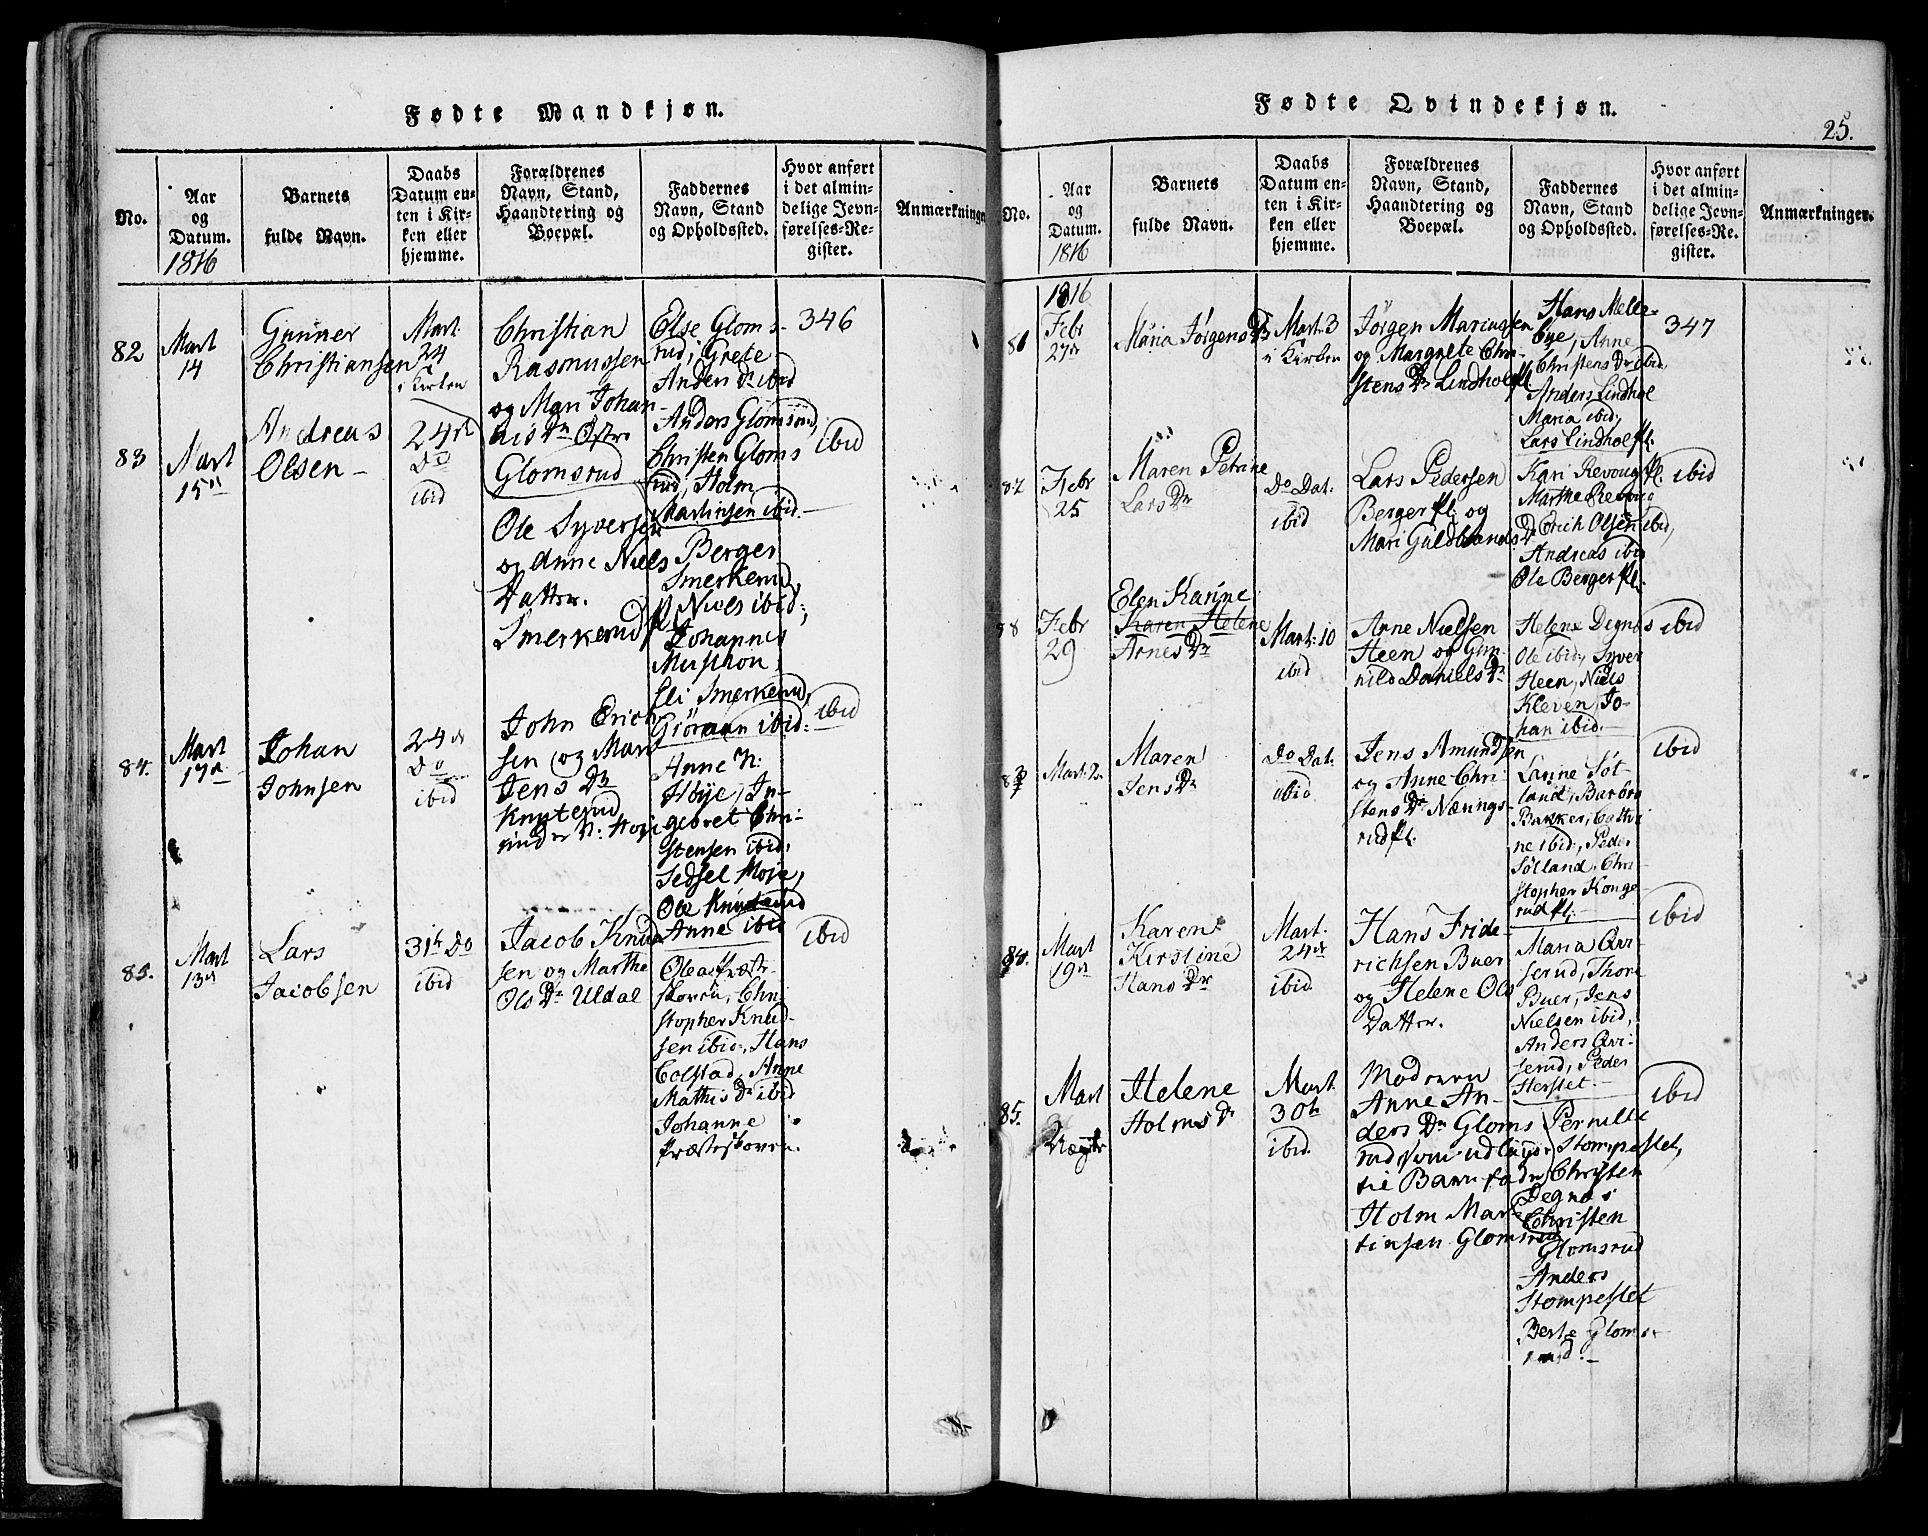 Fødte Mandkjøn.
No.
Aar
og
Datum.
1816
Barnets
fulde Navn.
Daabs
Datum en-
ten i Kir-
ken eller
hjemme.
Forældrenes
Navn, Stand,
Haandtering og
Boepæl.
Faddernes
Navn, Stand
og Opholdssted.
Hvor anført
i det almin-
delige Jevn-
førelses-Re-
gister.
Anmærkninger
82
Mart
14
Gunner
Christiansen
Mart.
24
i Kirken
Christian
Rasmussen
og Mari Johan-
nis Dr
Glomsrud
Else Gloms-
rud, Grete
Anders Dr ibid
Anders Glomsrud,
Christen Gloms
rud, Holm
Martinsen ibid.
346
83
Mart
15
Andreas
Olsen
24
Do
ibid
Ole Syversen
og Anne Niels
Datter.
Smerkerud
Berger
Smerkerud,
Niels ibid;
Johannes
Musphon,
Eli Smerkerud,
Gjöran ibid.
ibid
84.
Mart
17
Johan
Johnsen
24
Do
ibid
John Erich
sen og Mari
Jens Dr
Knyterud
under N: Høje
Anne N:
Høije, In-
gebret Chri-
stensen ibid,
Sedsel Moje,
Ole Knuterud
Anne ibid
ibid
85.
Mart
13
Lars
Jacobsen
31t Do
ibid
Jacob Knud
sen og Marthe
Ols Dr Uldal
Olea Præst-
skoven, Chri
stopher Knud-
sen ibid, Hans
Colstad, Anne
Mathis Dr ibid
Johanne
Præsteskoven.
ibid
Fødte Qvindekjøn.
25.
No.
Aar
og
Datum.
1816
Barnets
fulde Navn.
Daabs
Datum en-
ten i Kir-
ken eller
hjemme.
Forældrenes
Navn, Stand,
Haandtering og
Boepæl.
Faddernes
Navn, Stand
og Opholdssted.
Hvor anført
i det almin-
delige Jevn-
førelses-Re-
gister.
Anmærkninger.
81
1816
Febr
27
Maria Jørgens Dr
Mart. 3
i Kirken
Jørgen Mariussen
og Margrete Chri-
stens Dr Lindhol pl.
Hans Melle-
bye, Anne
Christens Dr ibid,
Anders Lindhol
Maria ibid,
Lars Lindhol pl.
347
82
Febr
25
Maren Petrine
Lars Dr
Do Dat.
ibid
Lars Pedersen
Berger pl. og
Mari Guldbrands Dr
Kari Revoug pl.
Marthe Revoug
Erich Olsen ibid,
Andreas ibid
Ole Berger pl.
ibid
Febr
29
Elen Karine
Karen Helene
Arnes Dr
Mart. 10
ibid
Arne Nielsen
Heen og Gun
nild Daniels Dr
Helene Degnes
Ole ibid, Syver
Heen, Niels
Kleven, Jo-
han ibid.
ibid
83
Mart. 2
Maren
Jens Dr
Do Dat.
ibid
Jens Amundsen
og Anne Chri
stens Dr Nærings-
rud pl.
Larine Søt-
land, Barbro
Bakker, Cathri
ne ibid, Peder
Sølland, Chri
stopher Konge
rud pl.
ibid
84.
Mart
19
Karen
Kirstine
Hans Dr
Mart.
24
ibid.
Hans Fride-
richsen Buer
og Helene Ols
Datter.
Maria Qvi
serud, Thore
Buer, Jens
Nielsen ibid,
Anders Qvi-
serud, Peder
Herstet
ibid
85.
Mart
Helene
Holms Dr
Mart.
30t
ibid.
Moderen
Anne An-
ders Dr Gloms
rud som udlagde
til Barnefader
Holm Mar-
tinsen Glomsrud
Pernille
Stompestet,
Christen
Degnes
Christen
Glomsrud
Anders
Stompestet
Berte Gloms-
rud.
ibid